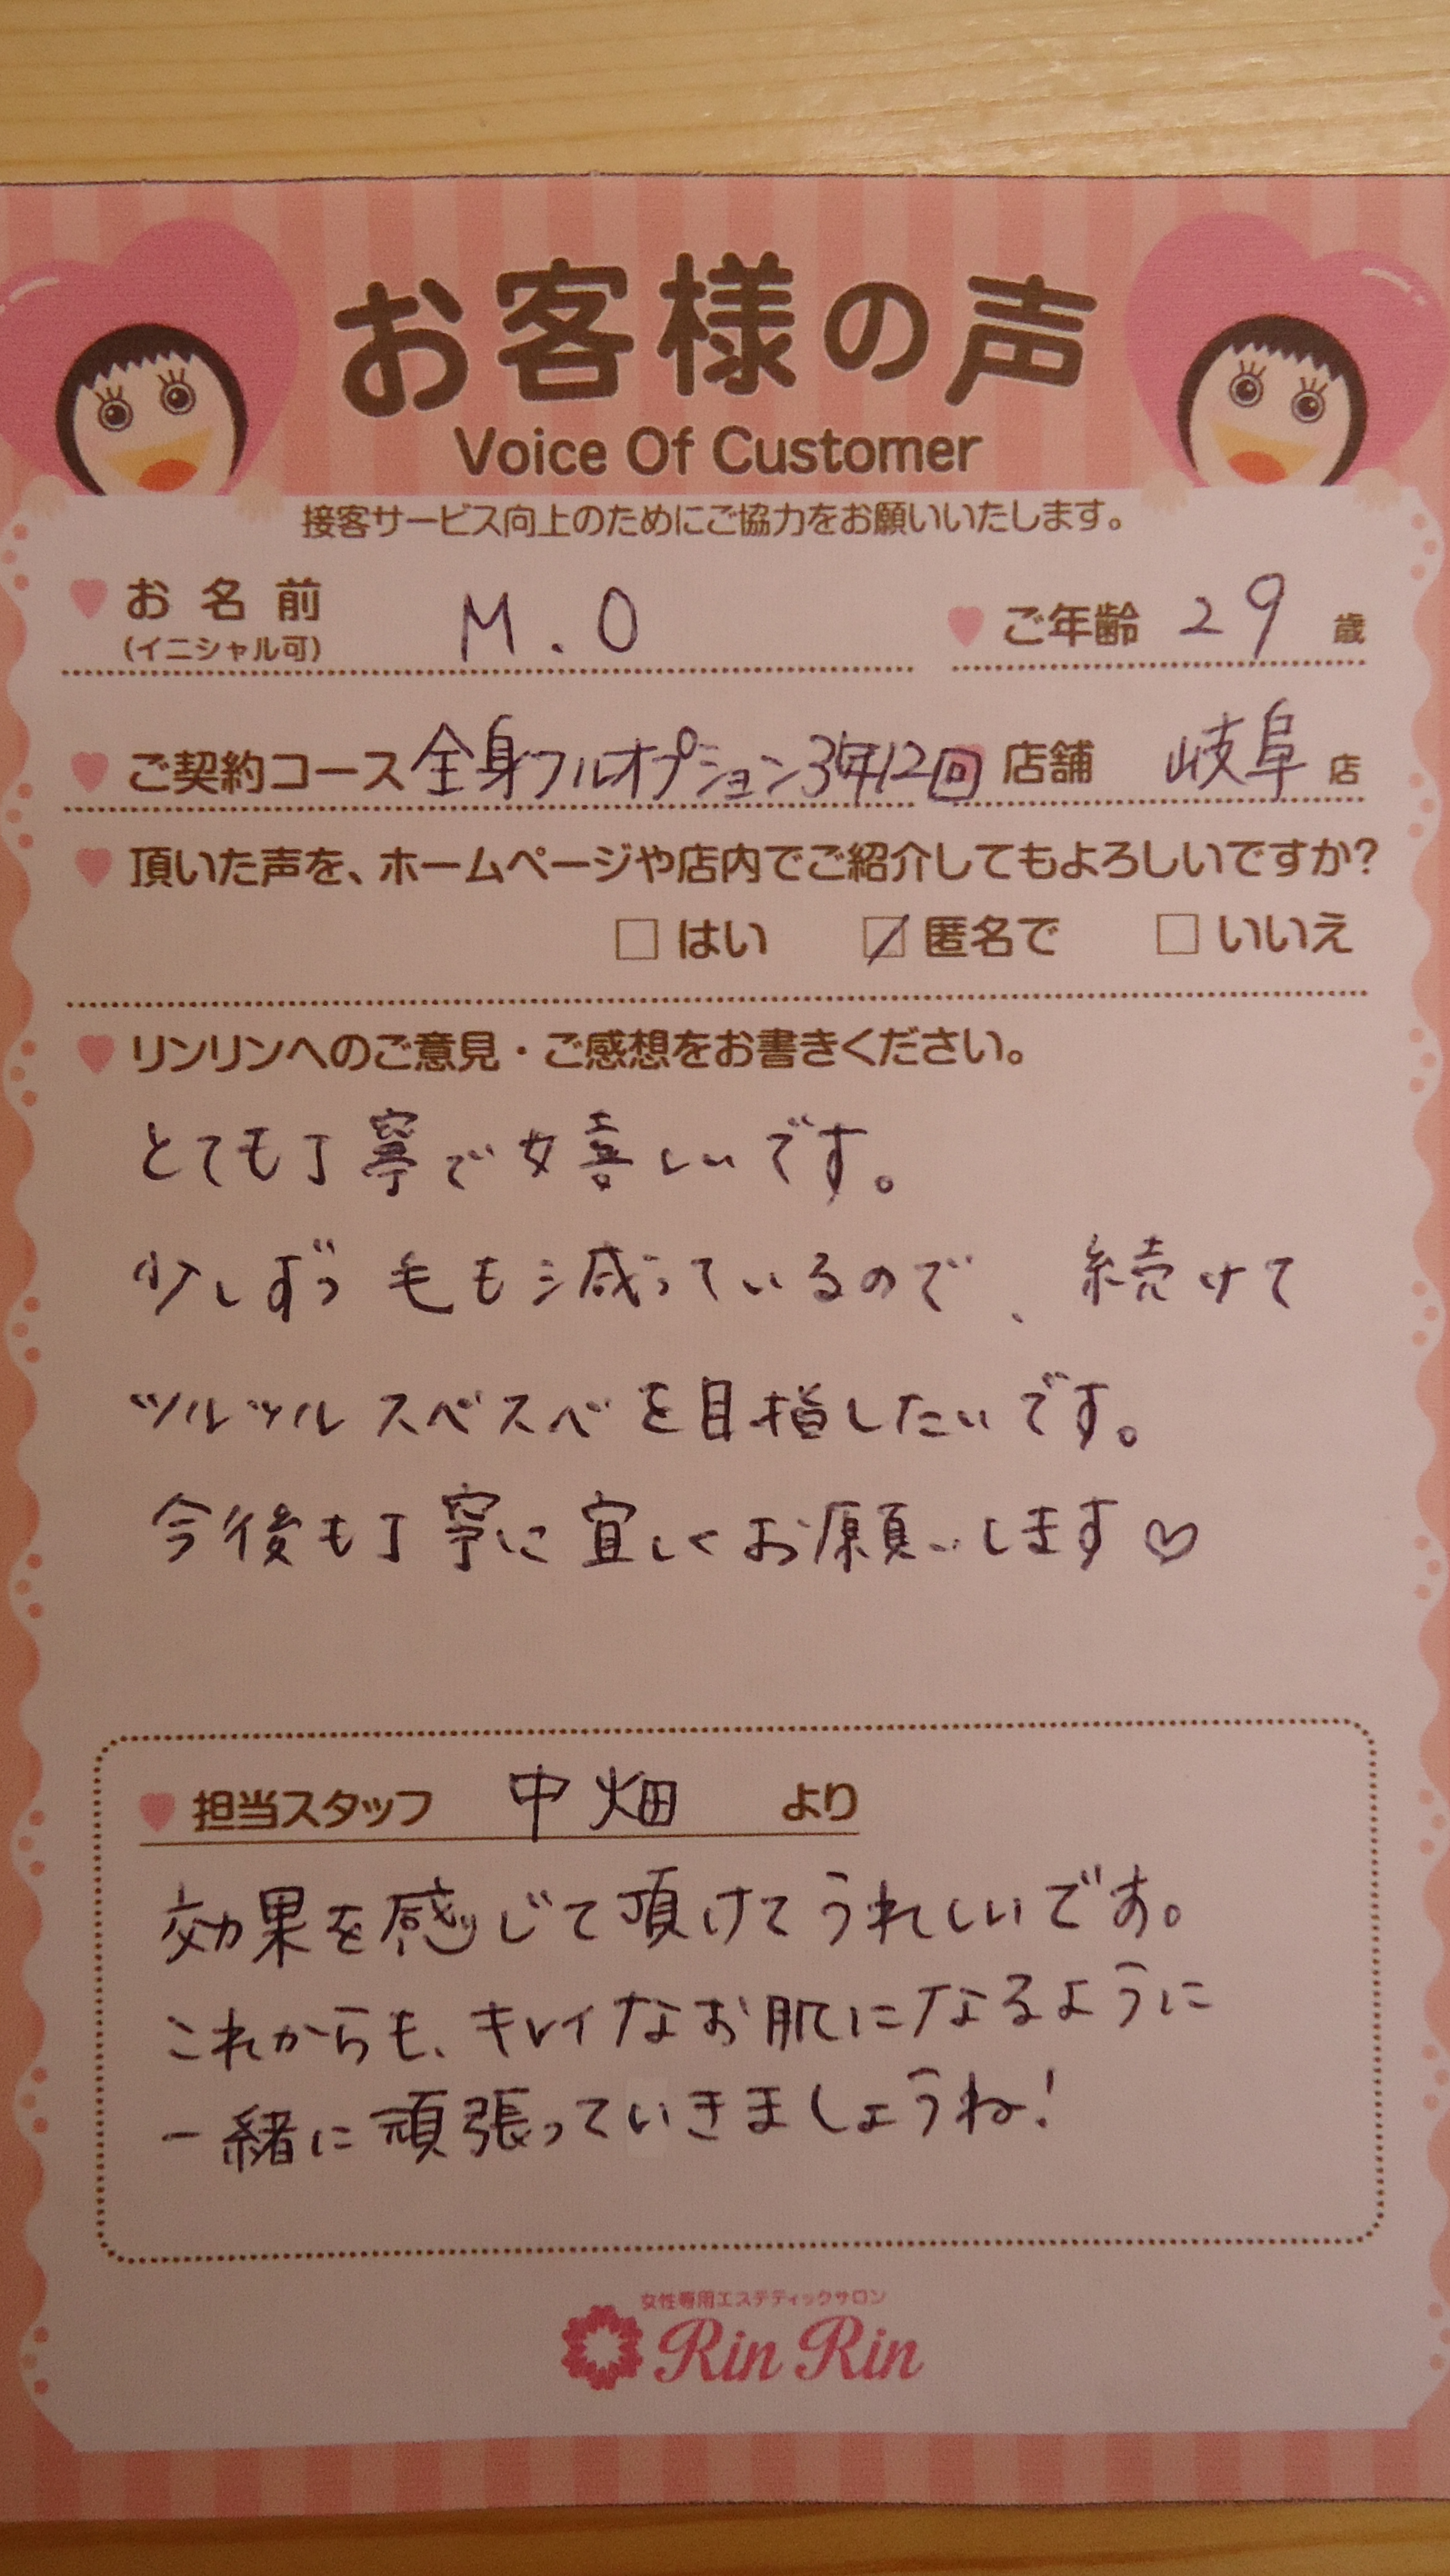 お客様の声
Voice Of Customer
接客サービス向上のためにご協力をお願いいたします。
お名前 M.O ご年齢 29 歳
(イニシャル可)
ご契約コース 全身フルオプション3年12回 店舗 岐阜 店
頂いた声を、ホームページや店内でご紹介してもよろしいですか?
□ はい ☑ 匿名で □ いいえ
リンリンへのご意見・ご感想をお書きください。
とても丁寧で嬉しいです。
少しずつ毛も減っているので、続けて
ツルツルスベスベを目指したいです。
今後も丁寧に宜しくお願いします♡
担当スタッフ 中畑 より
効果を感じて頂けてうれしいです。
これからも、キレイなお肌になるように
一緒に頑張っていきましょうね!
女性専用エステティックサロン
Rin Rin